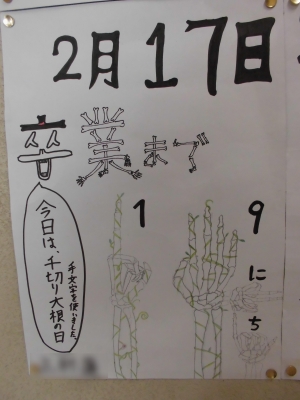 2月17日
卒業まで
19にち
今日は、千切り大根の日
手文字を使いました。